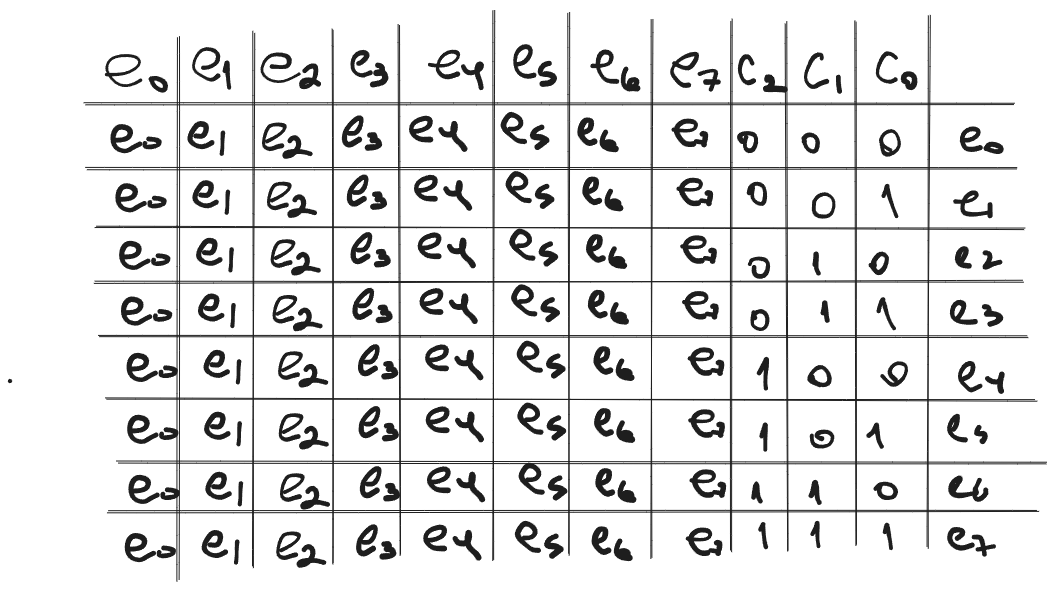 e₀ e₁ e₂ e₃ e₄ e₅ e₆ e₇ C₂ C₁ C₀
e₀ e₁ e₂ e₃ e₄ e₅ e₆ e₇ 0 0 0 e₀
e₀ e₁ e₂ e₃ e₄ e₅ e₆ e₇ 0 0 1 e₁
e₀ e₁ e₂ e₃ e₄ e₅ e₆ e₇ 0 1 0 e₂
e₀ e₁ e₂ e₃ e₄ e₅ e₆ e₇ 0 1 1 e₃
e₀ e₁ e₂ e₃ e₄ e₅ e₆ e₇ 1 0 0 e₄
e₀ e₁ e₂ e₃ e₄ e₅ e₆ e₇ 1 0 1 e₅
e₀ e₁ e₂ e₃ e₄ e₅ e₆ e₇ 1 1 0 e₆
e₀ e₁ e₂ e₃ e₄ e₅ e₆ e₇ 1 1 1 e₇